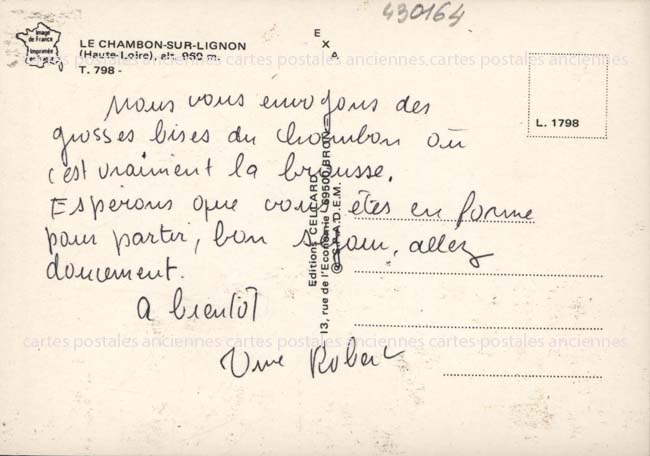 430164
Image
de France
Imprimée
en France
LE CHAMBON-SUR-LIGNON
(Haute-Loire), alt. 960 m.
T. 798 -
E
X A
L. 1798
Nous vous envoyons des
grosses bises du Chambon où
c'est vraiment la brousse.
Espérons que vous êtes en forme
pour partir, bon séjour, allez
doucement.
A bientôt
Robert
Editions CELLARD
13, rue de l'Economie 69500 BRON
© S.P.A.D.E.M.
cartes postales anciennes cartes postales anciennes cartes postales anciennes
cartes postales anciennes cartes postales anciennes cartes postales anciennes